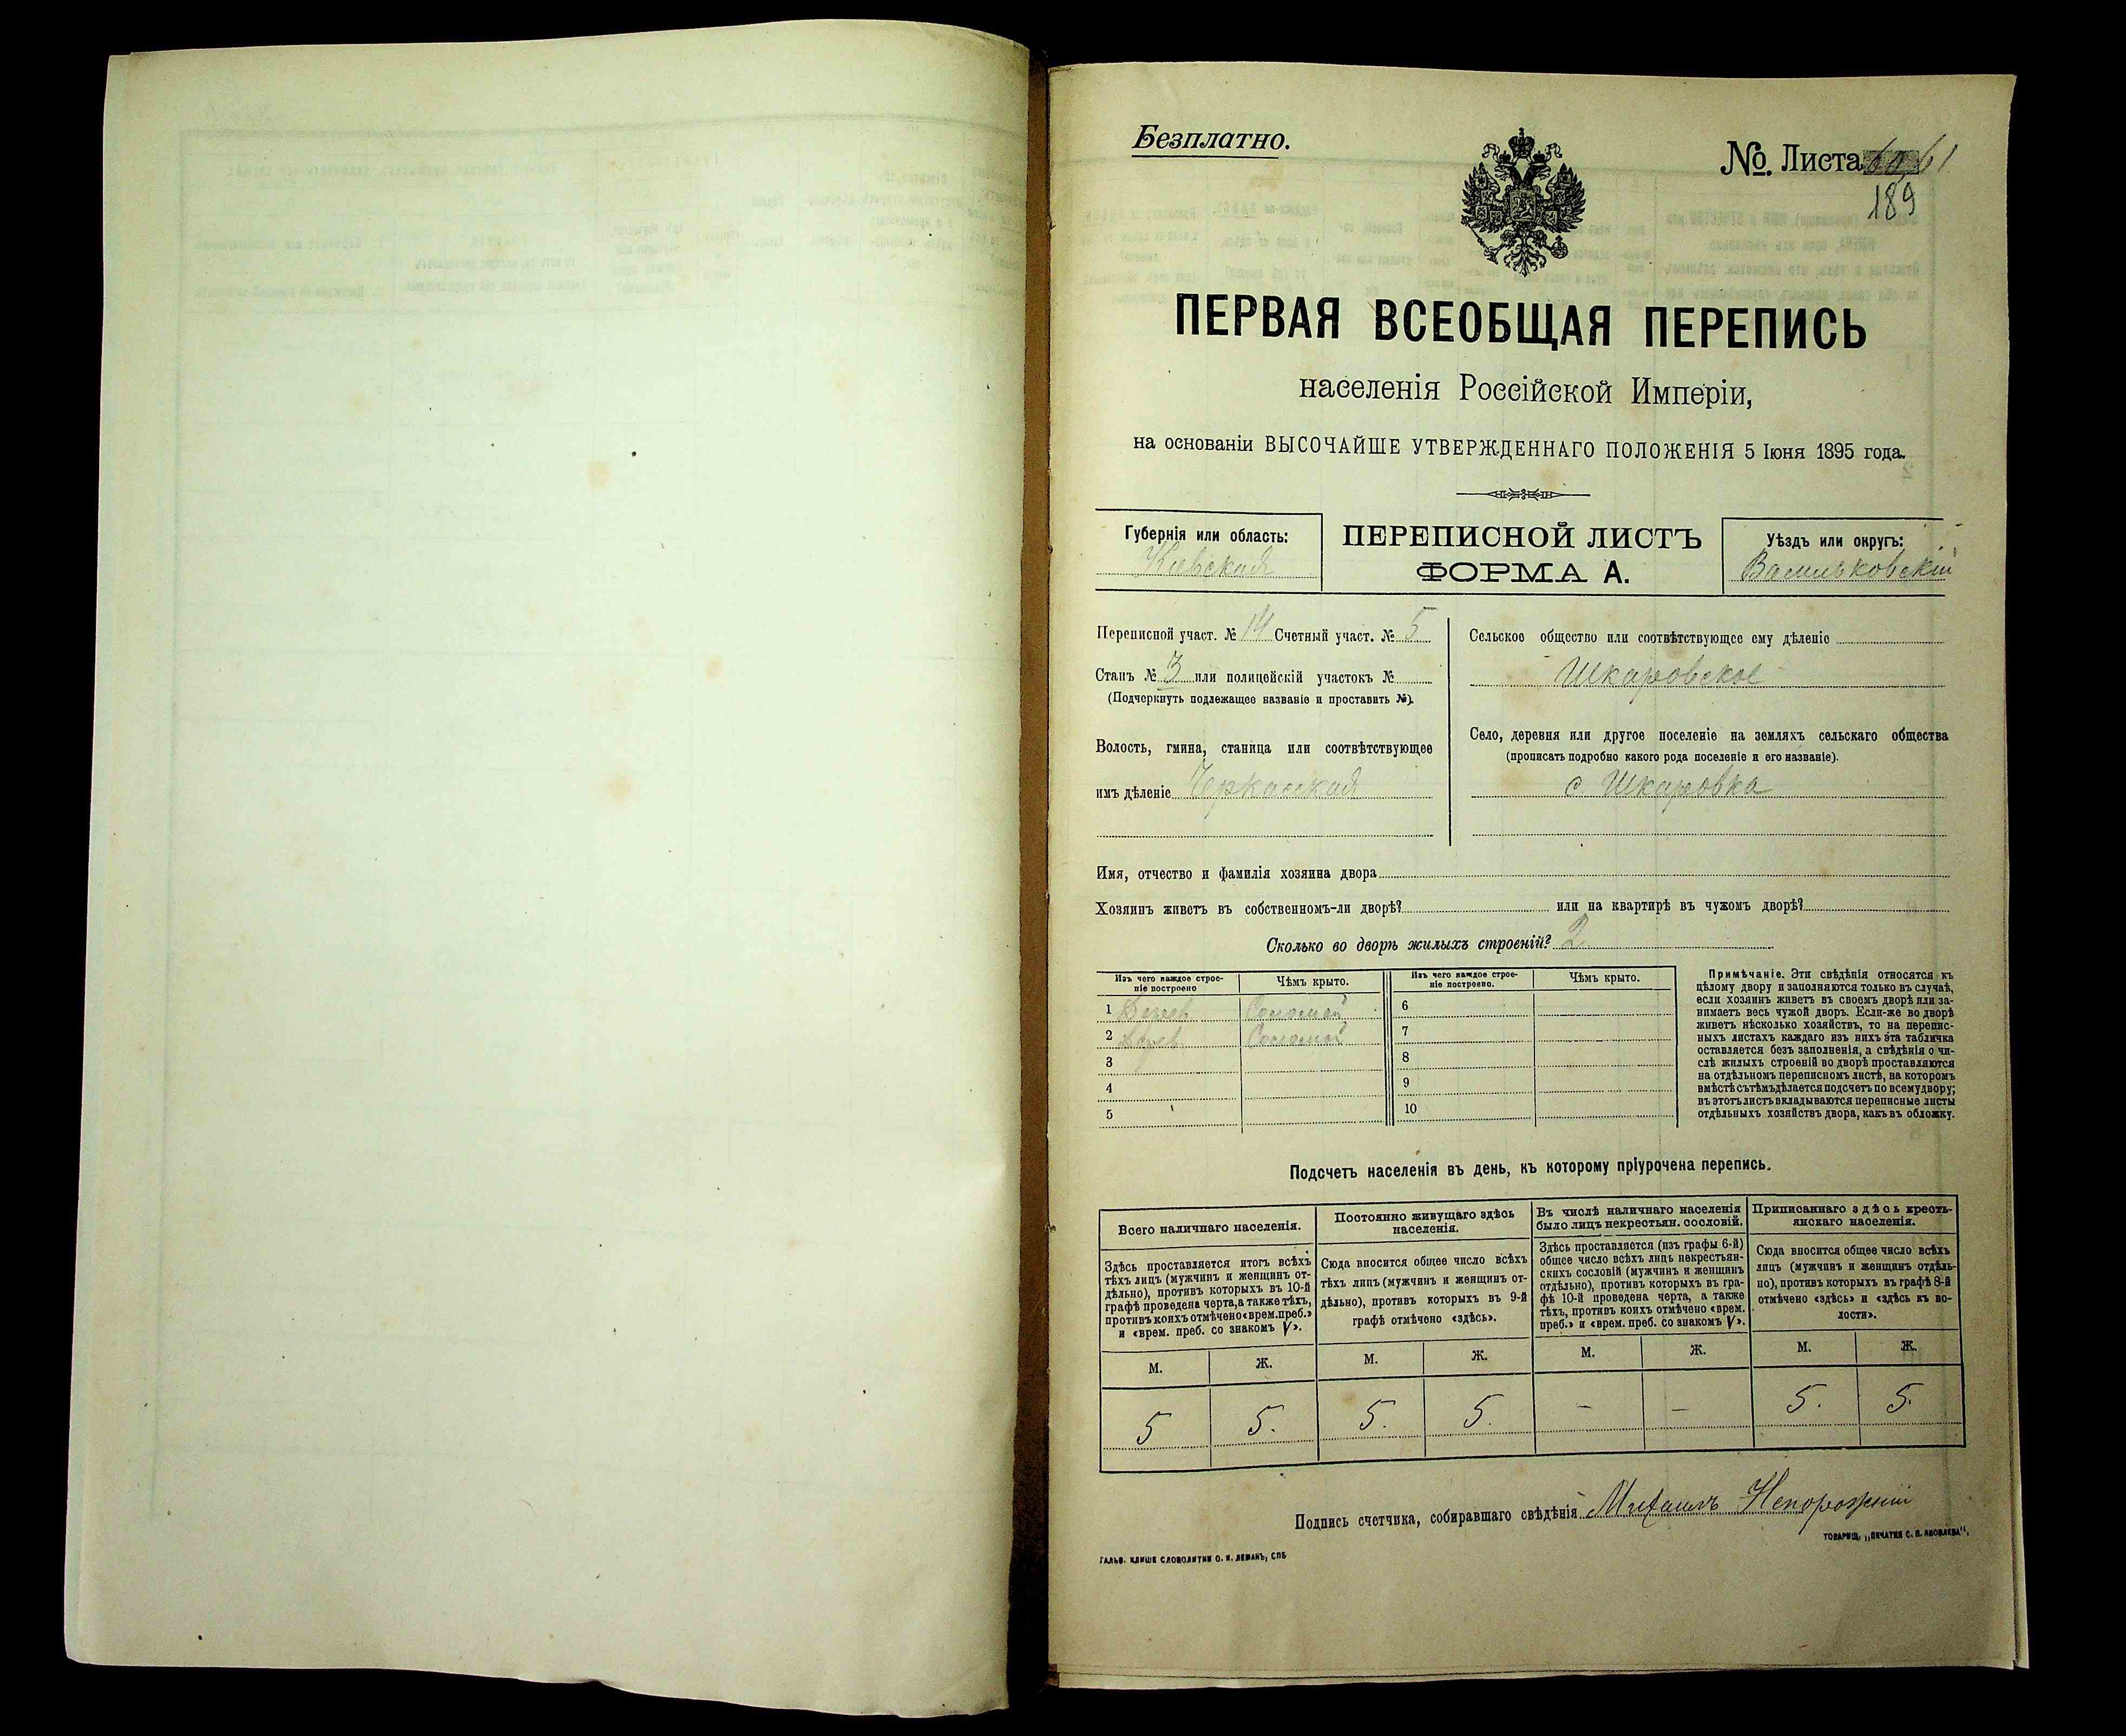 Безплатно.
№. Листа 61
189
ПЕРВАЯ ВСЕОБЩАЯ ПЕРЕПИСЬ
населенія Россійской Имперіи,
на основаніи ВЫСОЧАЙШЕ УТВЕРЖДЕННАГО ПОЛОЖЕНІЯ 5 Іюня 1895 года.
Губернія или область:
Кіевская
ПЕРЕПИСНОЙ ЛИСТЪ
ФОРМА А.
Уѣздъ или округъ:
Васильковскій
Переписной участ. № 14 Счетный участ. № 5
Станъ № 3 или полицейскій участокъ №
(Подчеркнуть подлежащее названіе и проставить №).
Волость, гмина, станица или соотвѣтствующее
имъ дѣленіе Черкасская
Сельское общество или соотвѣтствующее ему дѣленіе
Шкаровское
Село, деревня или другое поселеніе на земляхъ сельскаго общества
(прописать подробно какого рода поселеніе и его названіе).
с. Шкаровка
Имя, отчество и фамилія хозяина двора
Хозяинъ живетъ въ собственномъ-ли дворѣ? или на квартирѣ въ чужомъ дворѣ?
Сколько во дворѣ жилыхъ строеній? 2
Изъ чего каждое строе-
ніе построено
Чѣмъ крыто.
Изъ чего каждое строе-
ніе построено.
Чѣмъ крыто.
1 Дерев Соломой 6
2 Дерев Соломой 7
3 8
4 9
5 10
Примѣчаніе. Эти свѣдѣнія относятся къ
цѣлому двору и заполняются только въ случаѣ,
если хозяинъ живетъ въ своемъ дворѣ или за-
нимаетъ весь чужой дворъ. Если-же во дворѣ
живетъ нѣсколько хозяйствъ, то на перепис-
ныхъ листахъ каждаго изъ нихъ эта табличка
оставляется безъ заполненія, а свѣдѣнія о чи-
слѣ жилыхъ строеній во дворѣ проставляются
на отдѣльномъ переписномъ листѣ, на которомъ
вмѣстѣ съ тѣмъ дѣлается подсчетъ по всему двору;
въ этотъ листъ вкладываются переписные листы
отдѣльныхъ хозяйствъ двора, какъ въ обложку.
Подсчетъ населенія въ день, къ которому пріурочена перепись.
Всего наличнаго населенія.
Здѣсь проставляется итогъ всѣхъ
тѣхъ лицъ (мужчинъ и женщинъ от-
дѣльно), противъ которыхъ въ 10-й
графѣ проведена черта, а также тѣхъ,
противъ коихъ отмѣчено «врем. преб.»
и «врем. преб. со знакомъ V».
Постоянно живущаго здѣсь
населенія.
Сюда вносится общее число всѣхъ
тѣхъ лицъ (мужчинъ и женщинъ от-
дѣльно), противъ которыхъ въ 9-й
графѣ отмѣчено «здѣсь».
Въ числѣ наличнаго населенія
было лицъ некрестьян. сословій.
Здѣсь проставляется (изъ графы 6-й)
общее число всѣхъ лицъ некрестьян-
скихъ сословій (мужчинъ и женщинъ
отдѣльно), противъ которыхъ въ гра-
фѣ 10-й проведена черта, а также
тѣхъ, противъ коихъ отмѣчено «врем.
преб.» и «врем. преб. со знакомъ V».
Приписаннаго здѣсь кресть-
янскаго населенія.
Сюда вносится общее число всѣхъ
лицъ (мужчинъ и женщинъ отдѣль-
но), противъ которыхъ въ графѣ 8-й
отмѣчено «здѣсь» и «здѣсь къ во-
лости».
М. Ж. М. Ж. М. Ж. М. Ж.
5 5. 5. 5. – – 5. 5.
Подпись счетчика, собиравшаго свѣдѣнія Михаилъ Непорожній
ТОВАРИЩ. „ПЕЧАТНЯ С. П. ЯКОВЛЕВА",
ГАЛЬВ. КЛИШЕ СЛОВОЛИТНИ О. И. ЛЕМАНЪ, СПБ